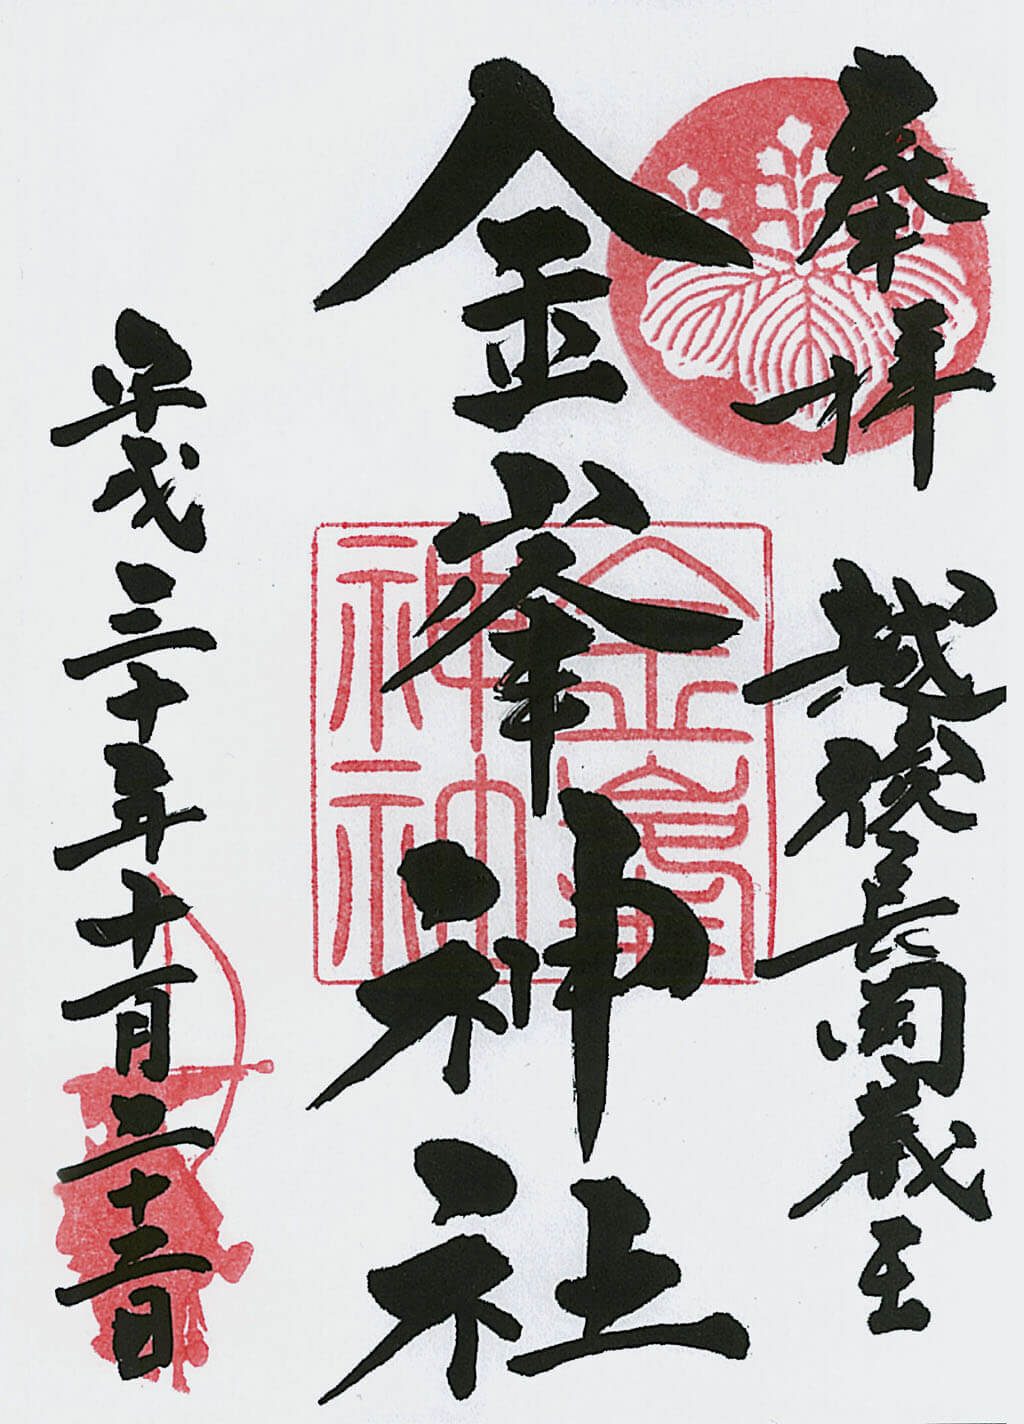 奉拝
越後長岡蔵王
金峯神社
金峯
神社
平成三十年十一月二十三日